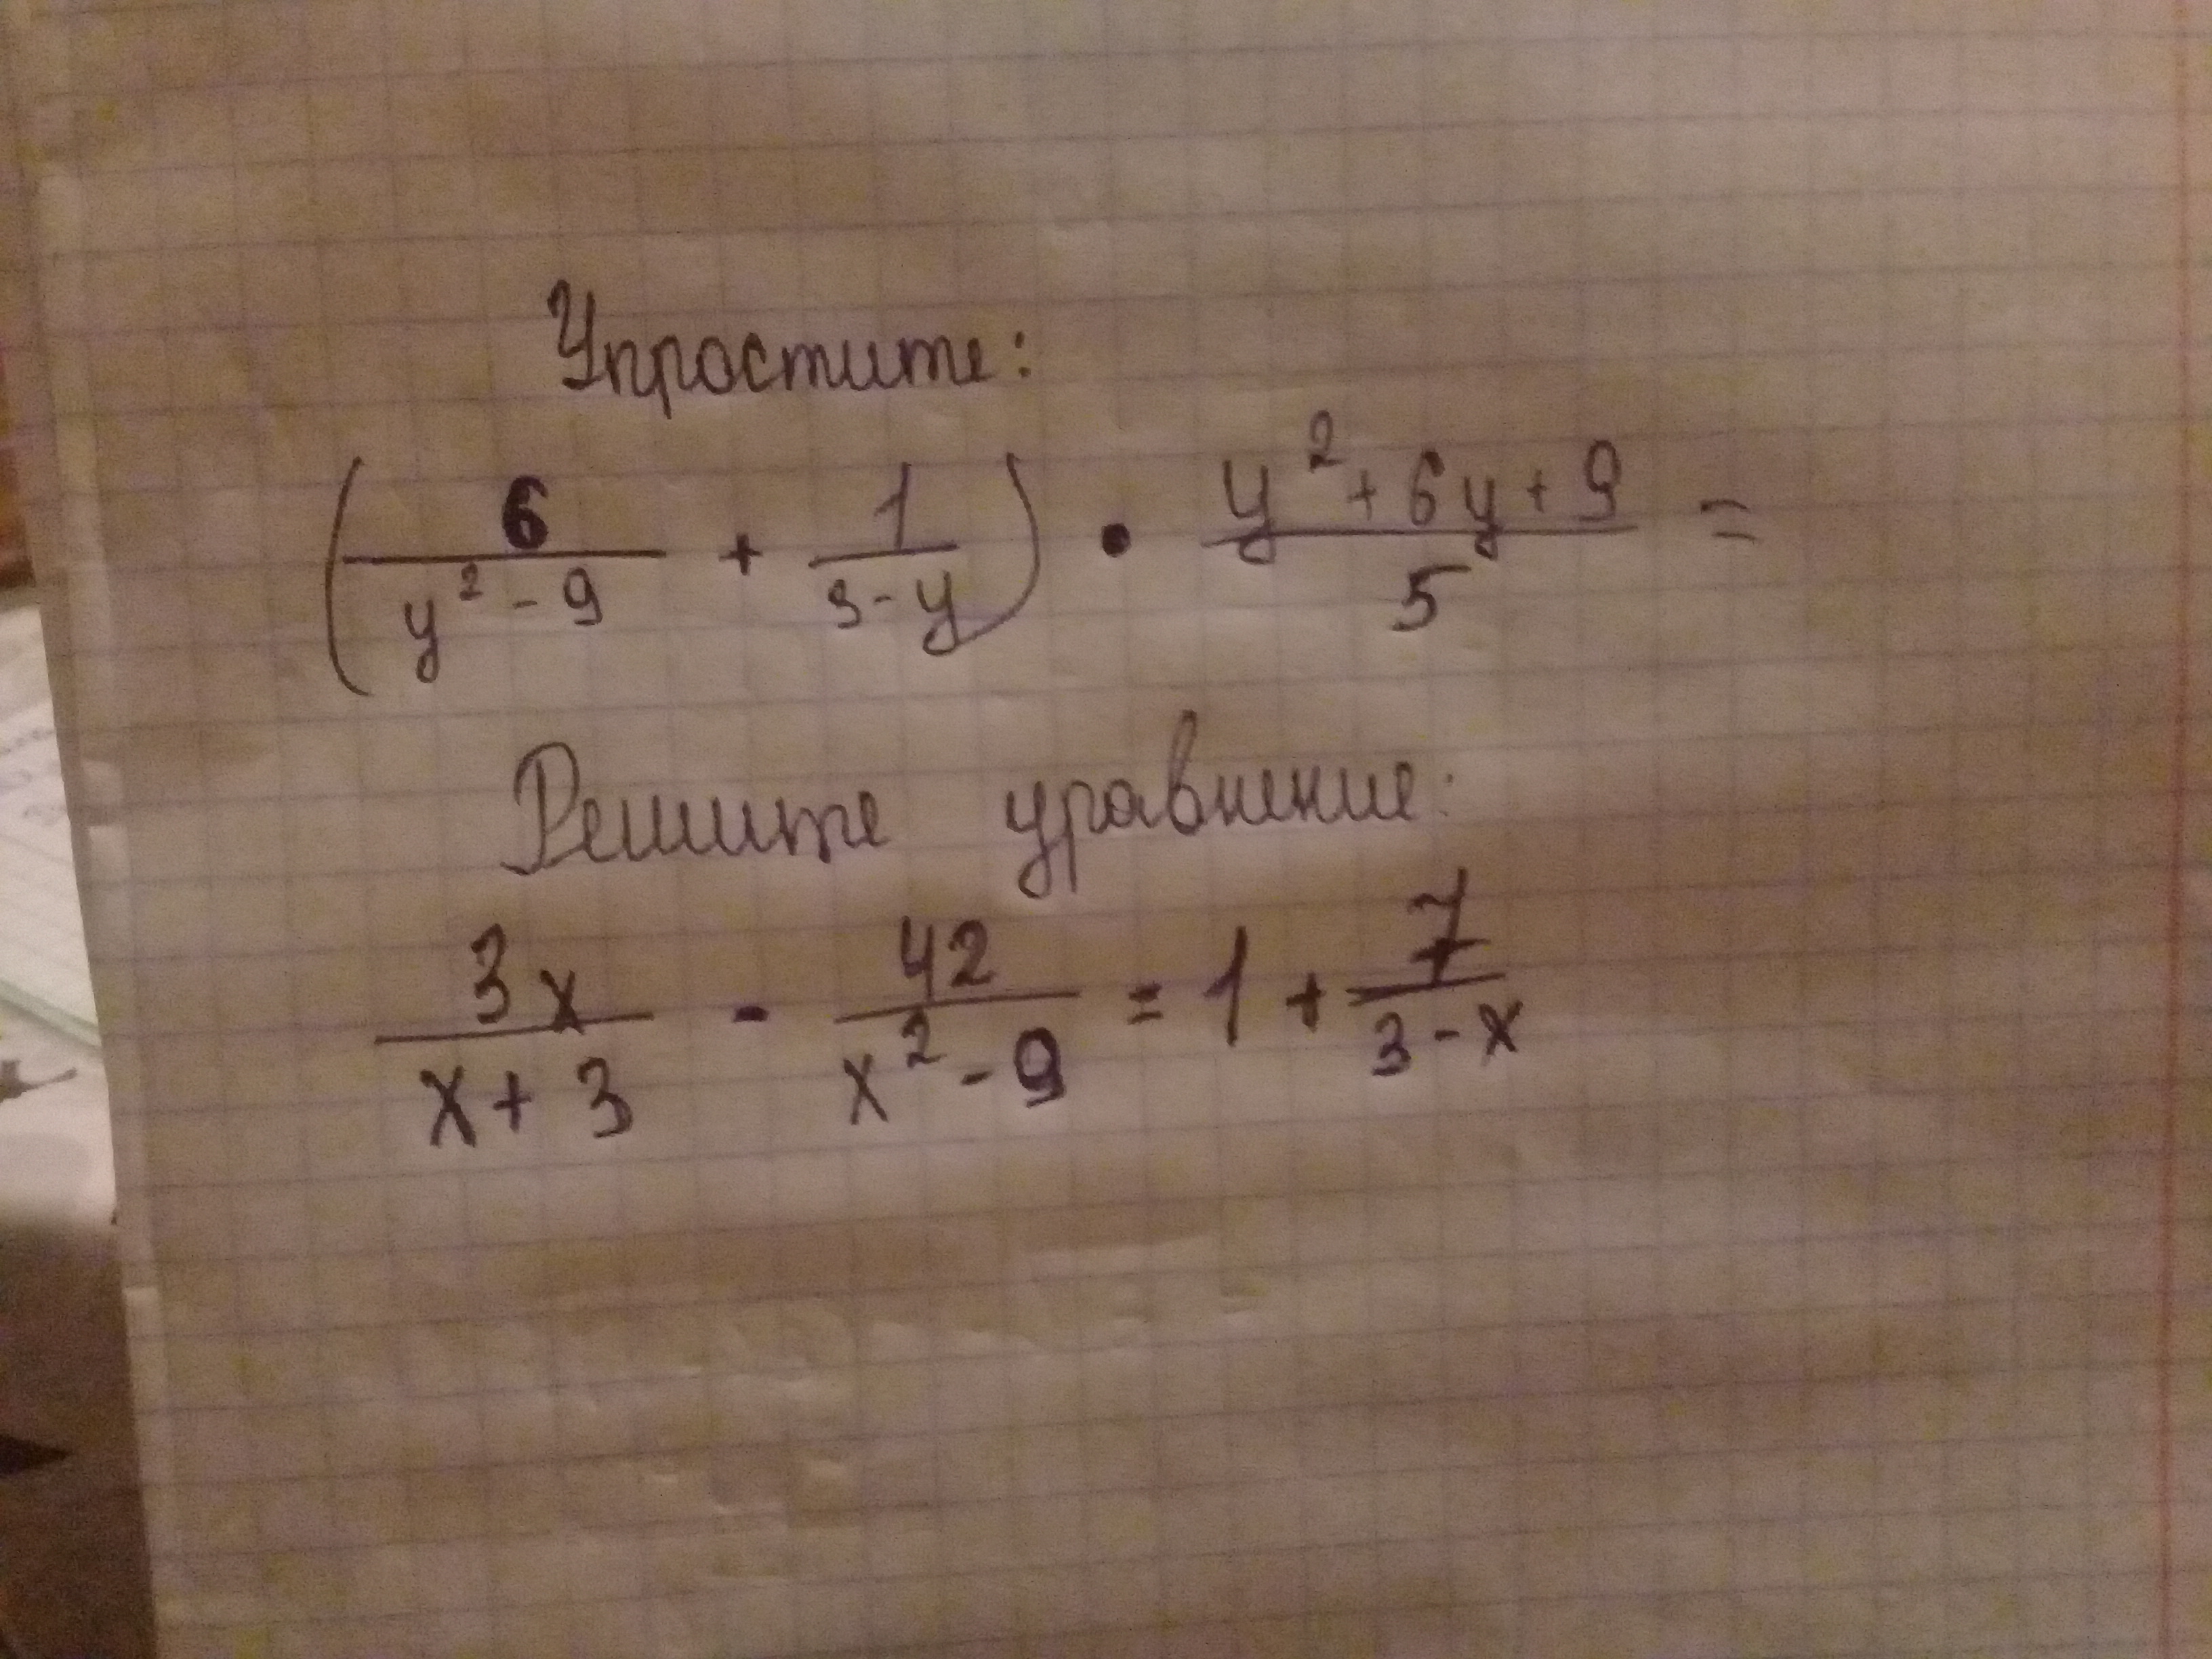 Упростите:
(6/(y² - 9) + 1/(3 - y)) • (y² + 6y + 9)/5 =
Решите уравнение:
3x/(x + 3) - 42/(x² - 9) = 1 + 7/(3 - x)